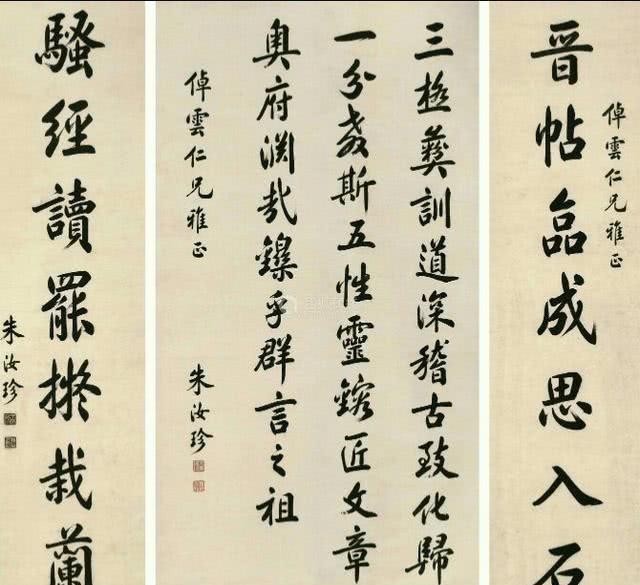 倬雲仁兄雅正
晋帖品成思入石
三極彝訓道深稽古致化歸
一分教斯五性靈鎔匠文章
奧府淵哉鑠乎群言之祖
倬雲仁兄雅正
朱汝珍
騷經讀罷擬栽蘭
朱汝珍